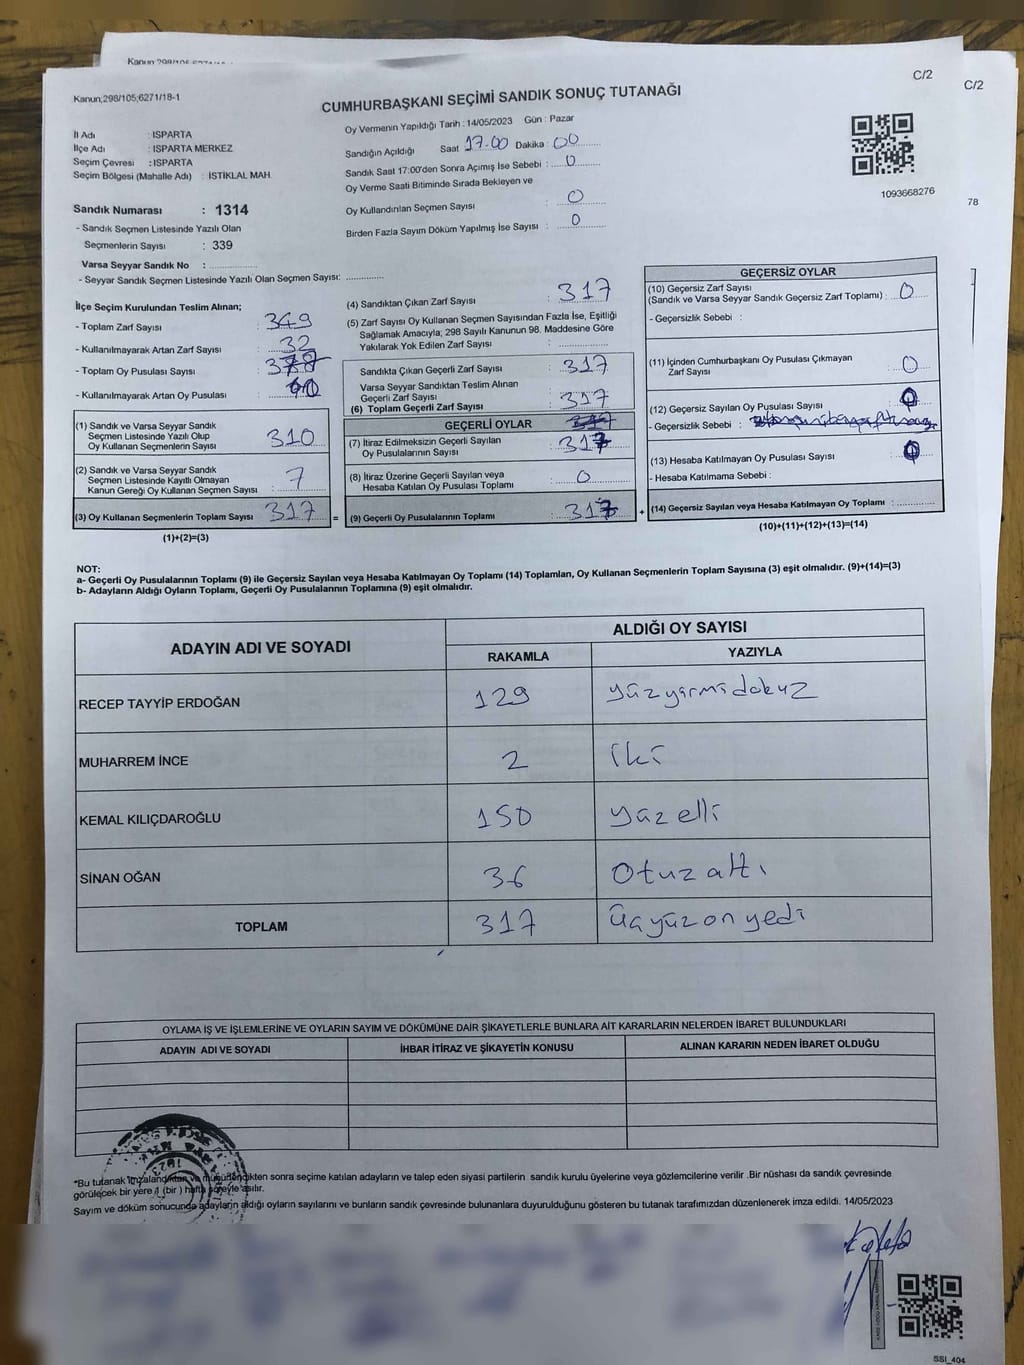 Kanun;298/105;6271/18-1
C/2
C/2
CUMHURBAŞKANI SEÇİMİ SANDIK SONUÇ TUTANAĞI
İl Adı : ISPARTA
İlçe Adı : ISPARTA MERKEZ
Seçim Çevresi : ISPARTA
Seçim Bölgesi (Mahalle Adı) : İSTİKLAL MAH.
Sandık Numarası : 1314
- Sandık Seçmen Listesinde Yazılı Olan
Seçmenlerin Sayısı : 339
Varsa Seyyar Sandık No :
- Seyyar Sandık Seçmen Listesinde Yazılı Olan Seçmen Sayısı:
Oy Vermenin Yapıldığı Tarih : 14/05/2023 Gün : Pazar
Sandığın Açıldığı Saat 17.00 Dakika : 00
Sandık Saat 17:00'den Sonra Açımış İse Sebebi : 0
Oy Verme Saati Bitiminde Sırada Bekleyen ve
Oy Kullandırılan Seçmen Sayısı : 0
Birden Fazla Sayım Döküm Yapılmış İse Sayısı : 0
1093668276
78
İlçe Seçim Kurulundan Teslim Alınan;
- Toplam Zarf Sayısı : 349
- Kullanılmayarak Artan Zarf Sayısı : 32
- Toplam Oy Pusulası Sayısı :
- Kullanılmayarak Artan Oy Pusulası :
(1) Sandık ve Varsa Seyyar Sandık
Seçmen Listesinde Yazılı Olup
Oy Kullanan Seçmenlerin Sayısı : 310
(2) Sandık ve Varsa Seyyar Sandık
Seçmen Listesinde Kayıtlı Olmayan
Kanun Gereği Oy Kullanan Seçmen Sayısı : 7
(3) Oy Kullanan Seçmenlerin Toplam Sayısı : 317
(1)+(2)=(3)
(4) Sandıktan Çıkan Zarf Sayısı : 317
(5) Zarf Sayısı Oy Kullanan Seçmen Sayısından Fazla İse, Eşitliği
Sağlamak Amacıyla; 298 Sayılı Kanunun 98. Maddesine Göre
Yakılarak Yok Edilen Zarf Sayısı :
Sandıkta Çıkan Geçerli Zarf Sayısı : 317
Varsa Seyyar Sandıktan Teslim Alınan
Geçerli Zarf Sayısı : 317
(6) Toplam Geçerli Zarf Sayısı :
GEÇERLİ OYLAR
(7) İtiraz Edilmeksizin Geçerli Sayılan
Oy Pusulalarının Sayısı : 317
(8) İtiraz Üzerine Geçerli Sayılan veya
Hesaba Katılan Oy Pusulası Toplamı : 0
= (9) Geçerli Oy Pusulalarının Toplamı : 317 +
GEÇERSİZ OYLAR
(10) Geçersiz Zarf Sayısı
(Sandık ve Varsa Seyyar Sandık Geçersiz Zarf Toplamı) : 0
- Geçersizlik Sebebi :
(11) İçinden Cumhurbaşkanı Oy Pusulası Çıkmayan
Zarf Sayısı : 0
(12) Geçersiz Sayılan Oy Pusulası Sayısı : 0
- Geçersizlik Sebebi :
(13) Hesaba Katılmayan Oy Pusulası Sayısı : 0
- Hesaba Katılmama Sebebi :
(14) Geçersiz Sayılan veya Hesaba Katılmayan Oy Toplamı :
(10)+(11)+(12)+(13)=(14)
NOT:
a- Geçerli Oy Pusulalarının Toplamı (9) ile Geçersiz Sayılan veya Hesaba Katılmayan Oy Toplamı (14) Toplamları, Oy Kullanan Seçmenlerin Toplam Sayısına (3) eşit olmalıdır. (9)+(14)=(3)
b- Adayların Aldığı Oyların Toplamı, Geçerli Oy Pusulalarının Toplamına (9) eşit olmalıdır.
ADAYIN ADI VE SOYADI ALDIĞI OY SAYISI
RAKAMLA YAZIYLA
RECEP TAYYİP ERDOĞAN 129 yüzyirmidokuz
MUHARREM İNCE 2 iki
KEMAL KILIÇDAROĞLU 150 yüzelli
SİNAN OĞAN 36 Otuzaltı
TOPLAM 317 üçyüzonyedi
OYLAMA İŞ VE İŞLEMLERİNE VE OYLARIN SAYIM VE DÖKÜMÜNE DAİR ŞİKAYETLERLE BUNLARA AİT KARARLARIN NELERDEN İBARET BULUNDUKLARI
ADAYIN ADI VE SOYADI İHBAR İTİRAZ VE ŞİKAYETİN KONUSU ALINAN KARARIN NEDEN İBARET OLDUĞU
*Bu tutanak imzalandıktan ve mühürlendikten sonra seçime katılan adayların ve talep eden siyasi partilerin sandık kurulu üyelerine veya gözlemcilerine verilir .Bir nüshası da sandık çevresinde
görülecek bir yere 1 (bir ) hafta süreyle asılır.
Sayım ve döküm sonucunda adayların aldığı oyların sayılarını ve bunların sandık çevresinde bulunanlara duyurulduğunu gösteren bu tutanak tarafımızdan düzenlenerek imza edildi. 14/05/2023
SSI_404